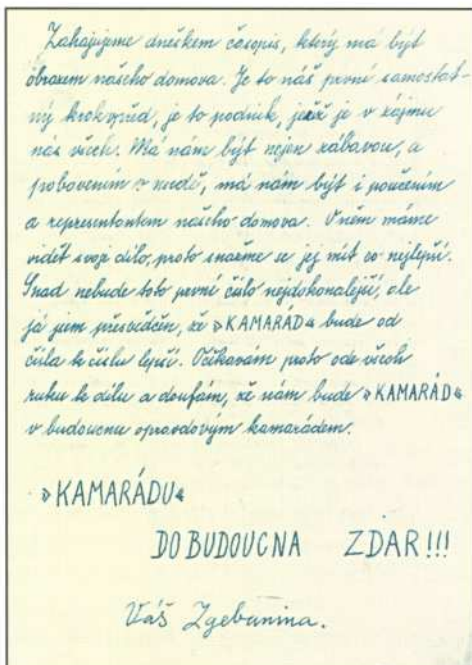 Zahajujeme dneškem časopis, který má být
obrazem našeho domova. Je to náš první samostat-
ný krok vpřed, je to podnik, jenž je v zájmu
nás všech. Má nám být nejen zábavou, a
pobavením v nudě, má nám být i poučením
a representantem našeho domova. V něm máme
vidět svoje dílo, proto snažme se jej mít co nejlepší.
Snad nebude toto první číslo nejdokonalejší, ale
já jsem přesvědčen, že »KAMARÁD« bude od
čísla k číslu lepší. Očekávám proto ode všech
ruku k dílu a doufám, že nám bude »KAMARÁD«
v budoucnu opravdovým kamarádem.
»KAMARÁDU«
DO BUDOUCNA ZDAR!!!
Váš Zgebunina.